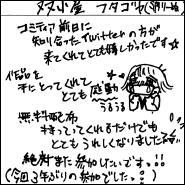 コミティア前日に
知り合ったTwitterの方が
来てくれてとても嬉しかったです☆
作品を
手にとってくれて
とても感動
うるうる
無料配布
持ってってくれるだけでも
とてもうれしくなりました
絶対また参加したいですっ!!
(今回3年ぶりの参加でした。!)